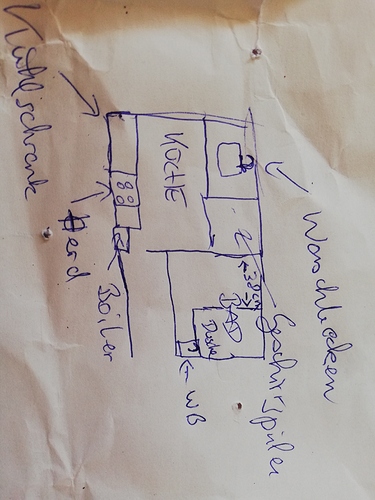 Kühlschrank
Herd
KÜCHE
Boiler
Waschbecken
Geschirrspüler
38 cm
BAD
Dusche
WB